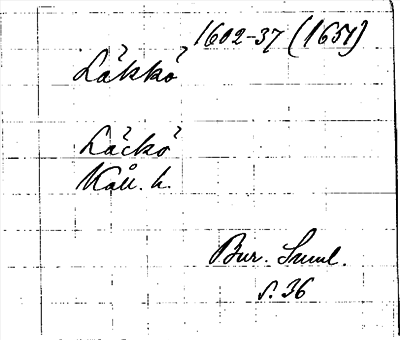 1602-37 (1657)
Läkkö
Läckö
Kåll. h.
Bur. Suml.
s. 36